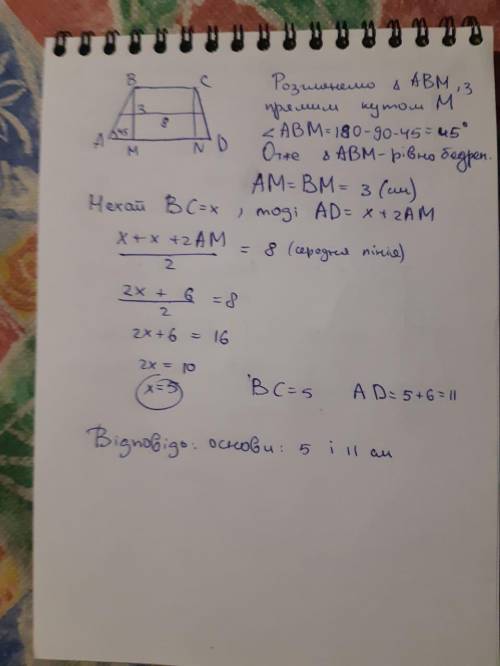 B C
3
8
A 45
M N D
Розглянемо Δ ABM, з
прямим кутом M
∠ABM=180-90-45=45°
Отже Δ ABM-рівнобедрен.
AM=BM= 3 (см)
Нехай BC=x, тоді AD= x+2AM
x+x+2AM / 2 = 8 (середня лінія)
2x + 6 / 2 =8
2x+6 = 16
2x = 10
x=5
BC=5 AD=5+6=11
Відповідь: основи: 5 і 11 см